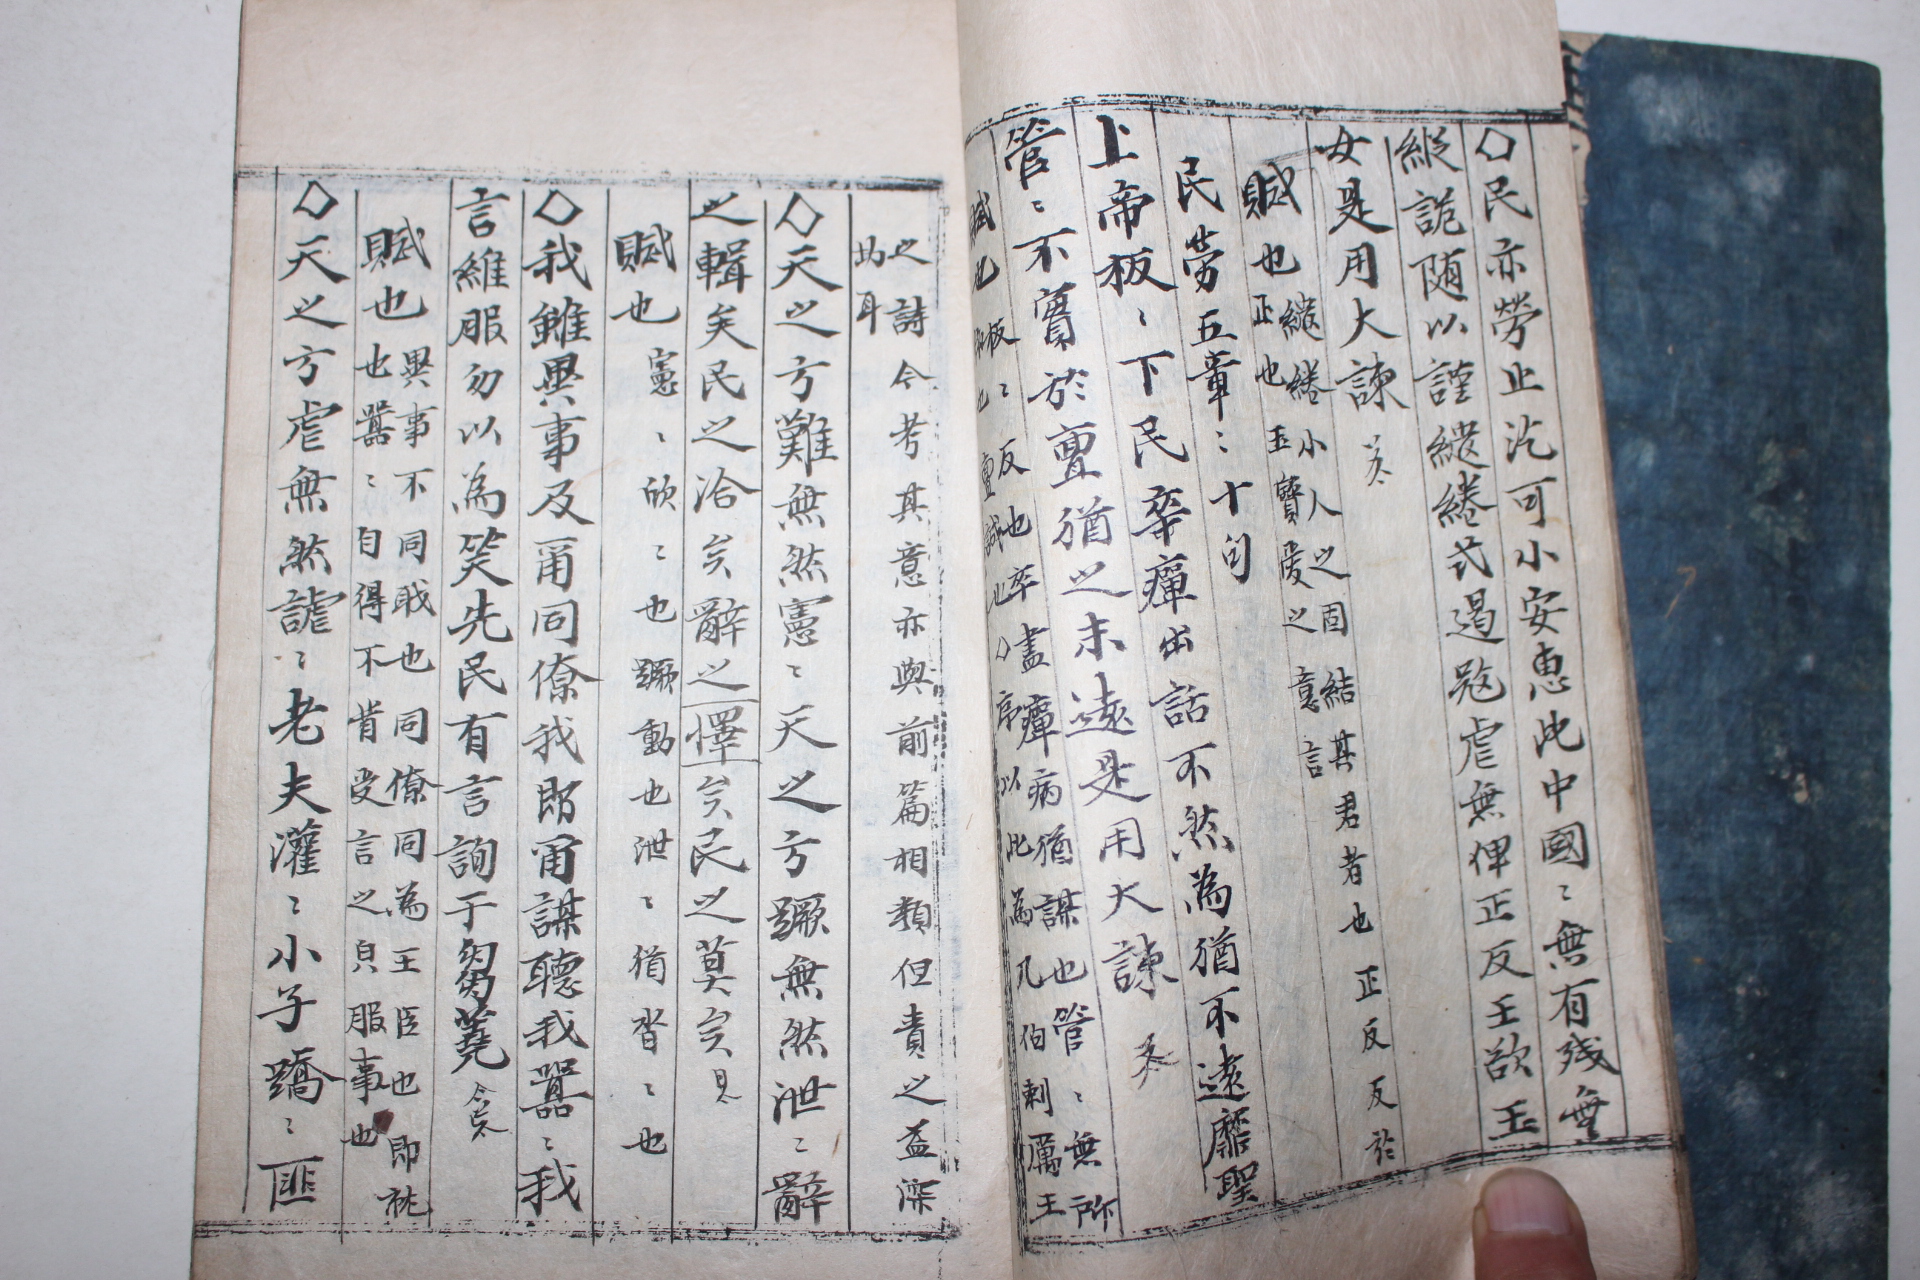 ◇民亦勞止汔可小安惠此中國〻無有殘無
縱詭隨以謹繾綣式遏寇虐無俾正反王欲玉
女是用大諫
賦也
繾綣小人之固結其君者也正反反於
正也玉寶愛之意言
民勞五章〻十句
上帝板〻下民卒癉出話不然為猶不遠靡聖
管〻不實於亶猶之未遠是用大諫
賦也
板〻反也卒盡癉病猶謀也管〻無所
也亶誠也○序以此為凡伯刺厲王
之詩今考其意亦與前篇相類但責之益深
此耳
◇天之方難無然憲〻天之方蹶無然泄〻辭
之輯矣民之洽矣辭之懌矣民之莫矣
賦也
憲〻欣〻也蹶動也泄〻猶沓〻也
◇我雖異事及爾同僚我即爾謀聽我囂〻我
言維服勿以為笑先民有言詢于芻蕘
賦也
異事不同職也同僚同為王臣也即就
也囂〻自得不肯受言之貝服事也
◇天之方虐無然謔〻老夫灌〻小子蹻〻匪